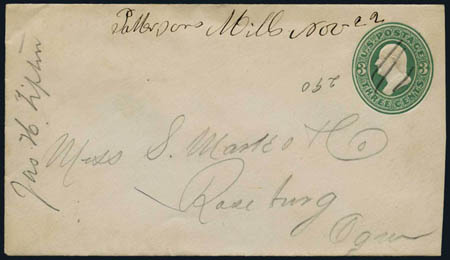 Pattersons Mills Nov 22
U.S. POSTAGE
THREE CENTS
290
Jas H. Tipton
Mess S. Marks & Co
Roseburg
Ogn